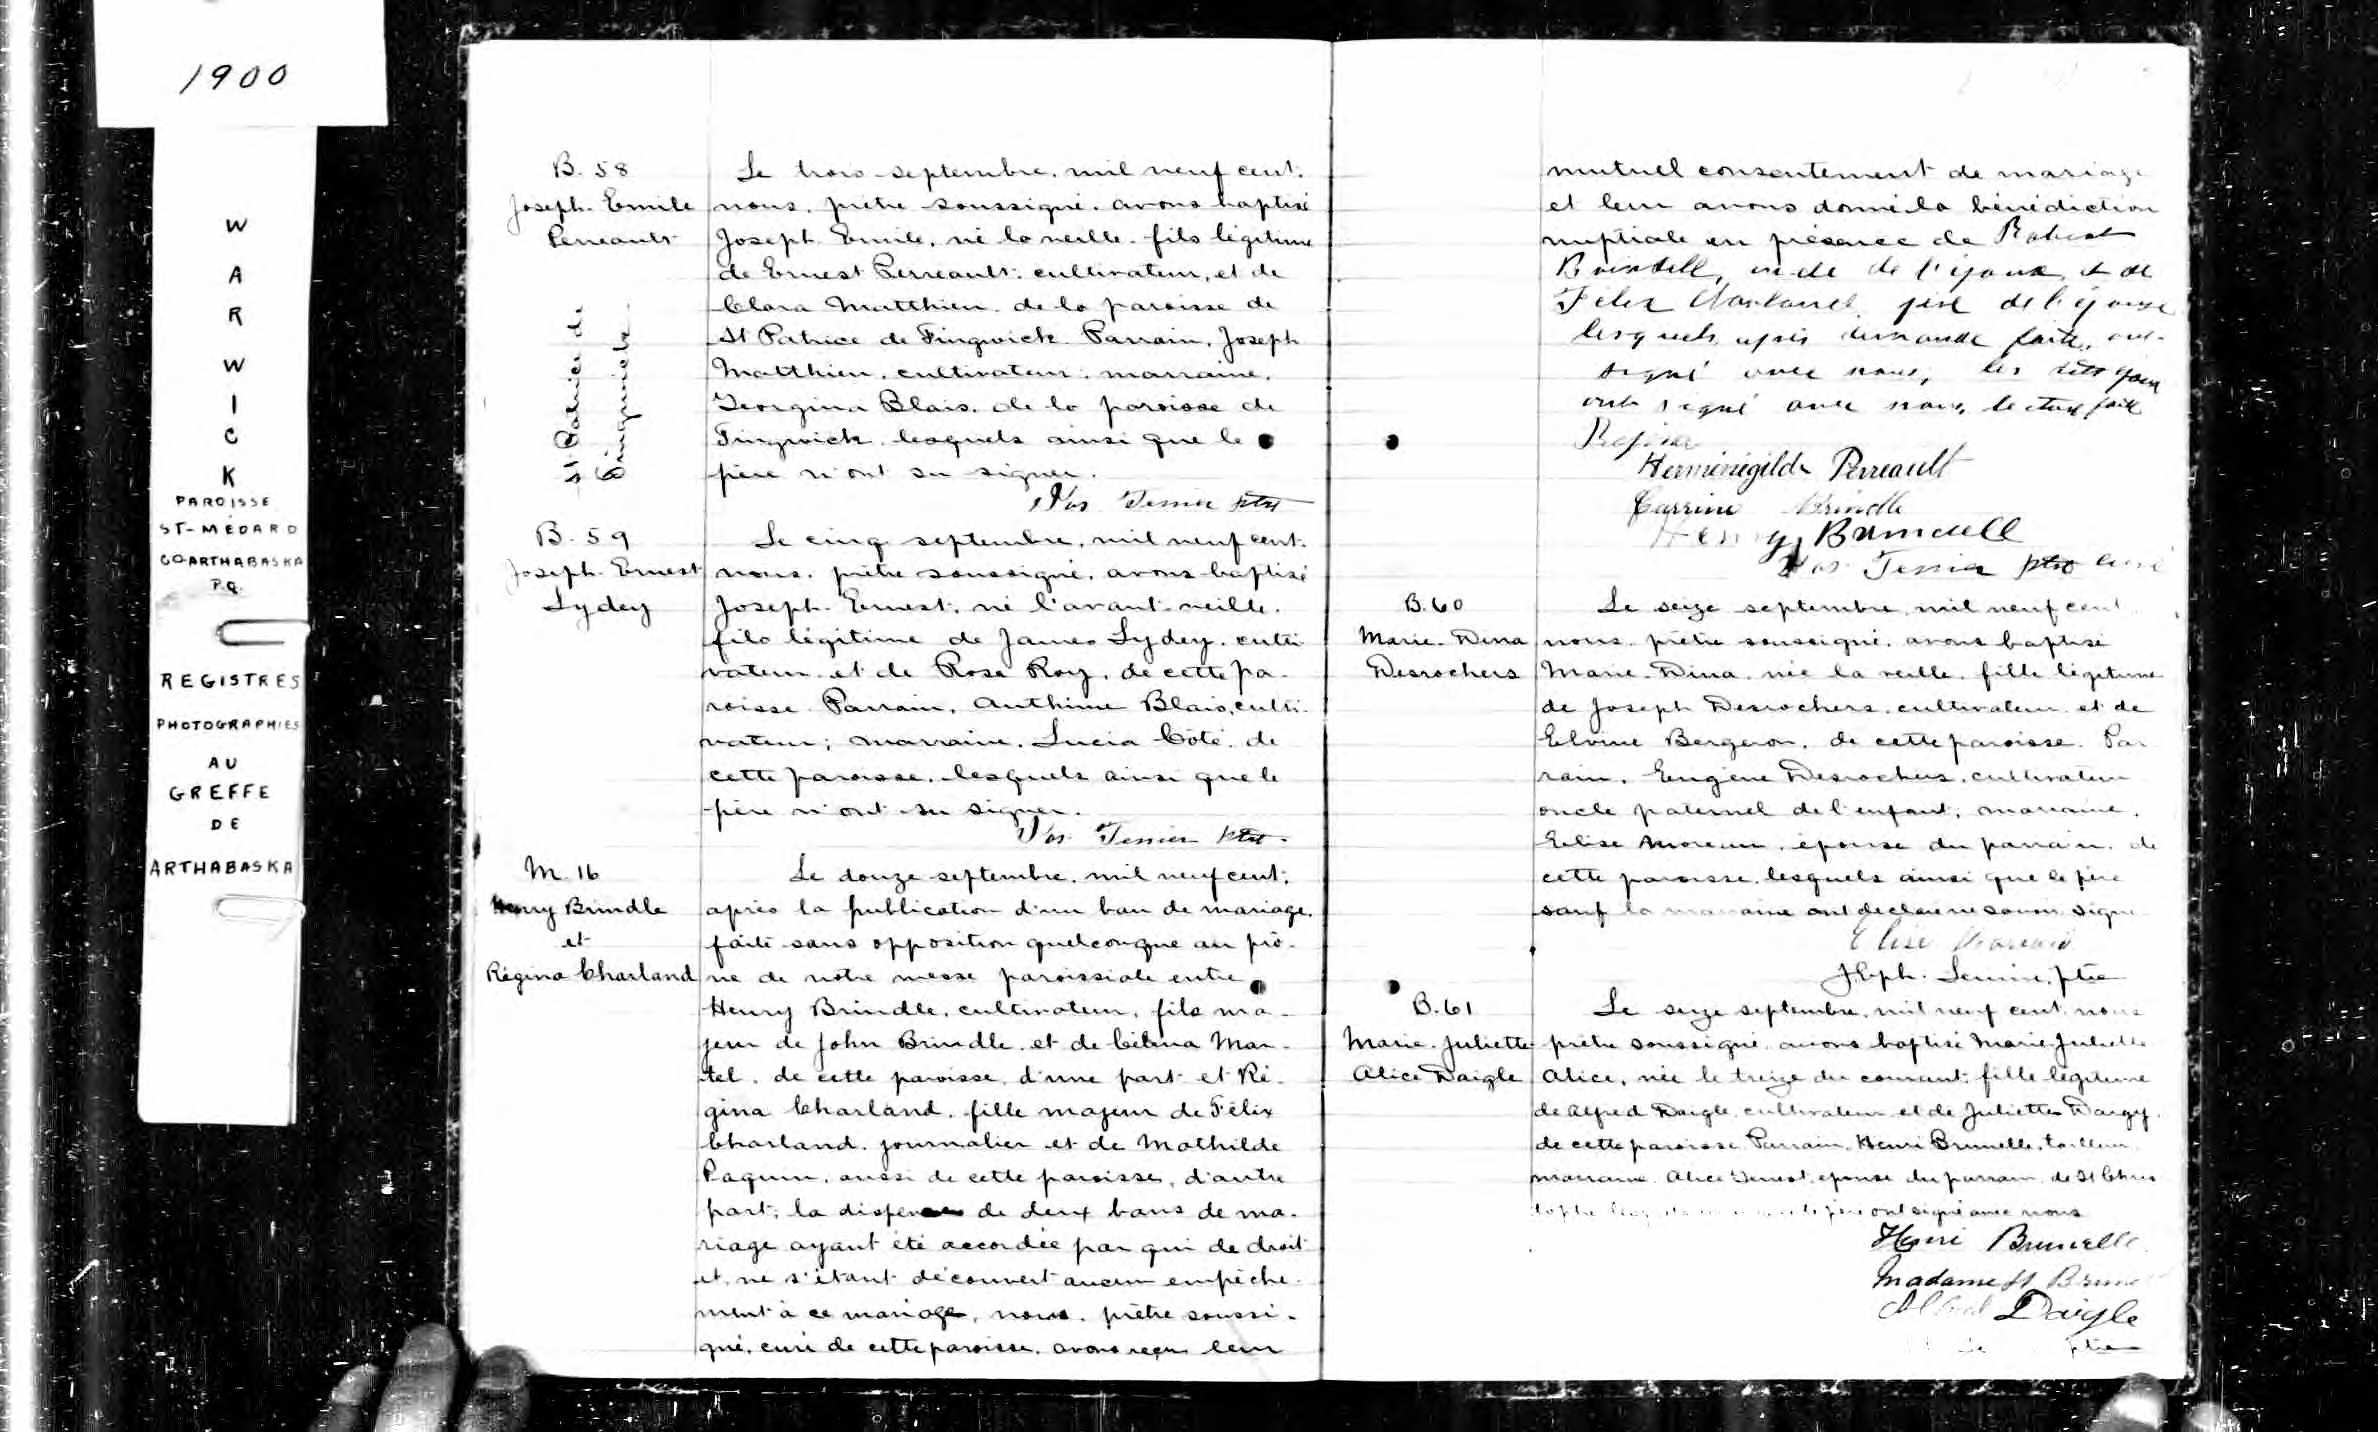 1900
WARWICK
PAROISSE
ST-MÉDARD
CO-ARTHABASKA
P.Q.
REGISTRES
PHOTOGRAPHIES
AU
GREFFE
DE
ARTHABASKA
B. 58
Joseph. Emile
Perreault
St Patrice de
Tingwick
Le trois septembre, mil neuf cent.
nous, prêtre soussigné, avons baptisé
Joseph Emile, né la veille, fils légitime
de Ernest Perreault, cultivateur, et de
Clara Matthieu, de la paroisse de
St Patrice de Tingwick. Parrain, Joseph
Matthieu, cultivateur; marraine,
Georgina Blais, de la paroisse de
Tingwick, lesquels ainsi que le
père n'ont su signer.
Tessier ptre
B. 59
Joseph. Ernest
Lydey
Le cinq septembre, mil neuf cent.
nous, prêtre soussigné, avons baptisé
Joseph. Ernest, né l'avant-veille,
fils légitime de James Lydey, culti
vateur et de Rose Roy, de cette pa-
roisse. Parrain, Anthime Blais, culti-
vateur; marraine, Lucia Côté, de
cette paroisse, lesquels ainsi que le
père n'ont su signer.
Tessier ptre.
M. 16
Henry Brindle
et
Régina Charland
Le douze septembre, mil neuf cent,
après la publication d'un ban de mariage,
faite sans opposition quelconque au prô-
ne de notre messe paroissiale entre
Henry Brindle, cultivateur, fils ma-
jeur de John Brindle et de Célina Mar-
tel, de cette paroisse, d'une part et Ré-
gina Charland, fille majeur de Félix
Charland, journalier et de Mathilde
Paquin, aussi de cette paroisse, d'autre
part; la dispense de deux bans de ma-
riage ayant été accordée par qui de droit
et ne s'étant découvert aucun empêche-
ment à ce mariage, nous, prêtre soussi-
gné, curé de cette paroisse, avons reçu leur
mutuel consentement de mariage
et leur avons donné la bénédiction
nuptiale en présence de Robert
Brindell, oncle de l'époux, et de
Félix Charland, père de l'épouse
lesquels, après demande faite, ont
signé avec nous, les
ont signé avec nous, lecture faite
Regina
Herménégilde Perreault
Carrine Brindle
Henry Brindell
Tessier ptre curé
B. 60
Marie. Dina
Desrochers
Le seize septembre, mil neuf cent,
nous, prêtre soussigné, avons baptisé
Marie. Dina, née la veille, fille légitime
de Joseph Desrochers, cultivateur et de
Elvine Bergeron, de cette paroisse. Par
rain, Eugène Desrochers, cultivateur
oncle paternel de l'enfant; marraine,
Elise Moreau, épouse du parrain, de
cette paroisse, lesquels ainsi que le père
sauf la marraine ont déclaré ne savoir signer
Elise Moreau
Jph. ptre
B. 61
Marie. Juliette
Alice Daigle
Le seize septembre, mil neuf cent, nous
prêtre soussigné, avons baptisé Marie Juliette
Alice, née le treize du courant, fille légitime
de Alfred Daigle, cultivateur et de Juliette
de cette paroisse. Parrain, Henri Brunelle, tailleur
marraine, Alice épouse du parrain, de St Chris
tophe père ont signé avec nous
Henri Brunelle
Madame H Brunel
Alfred Daigle
ptre